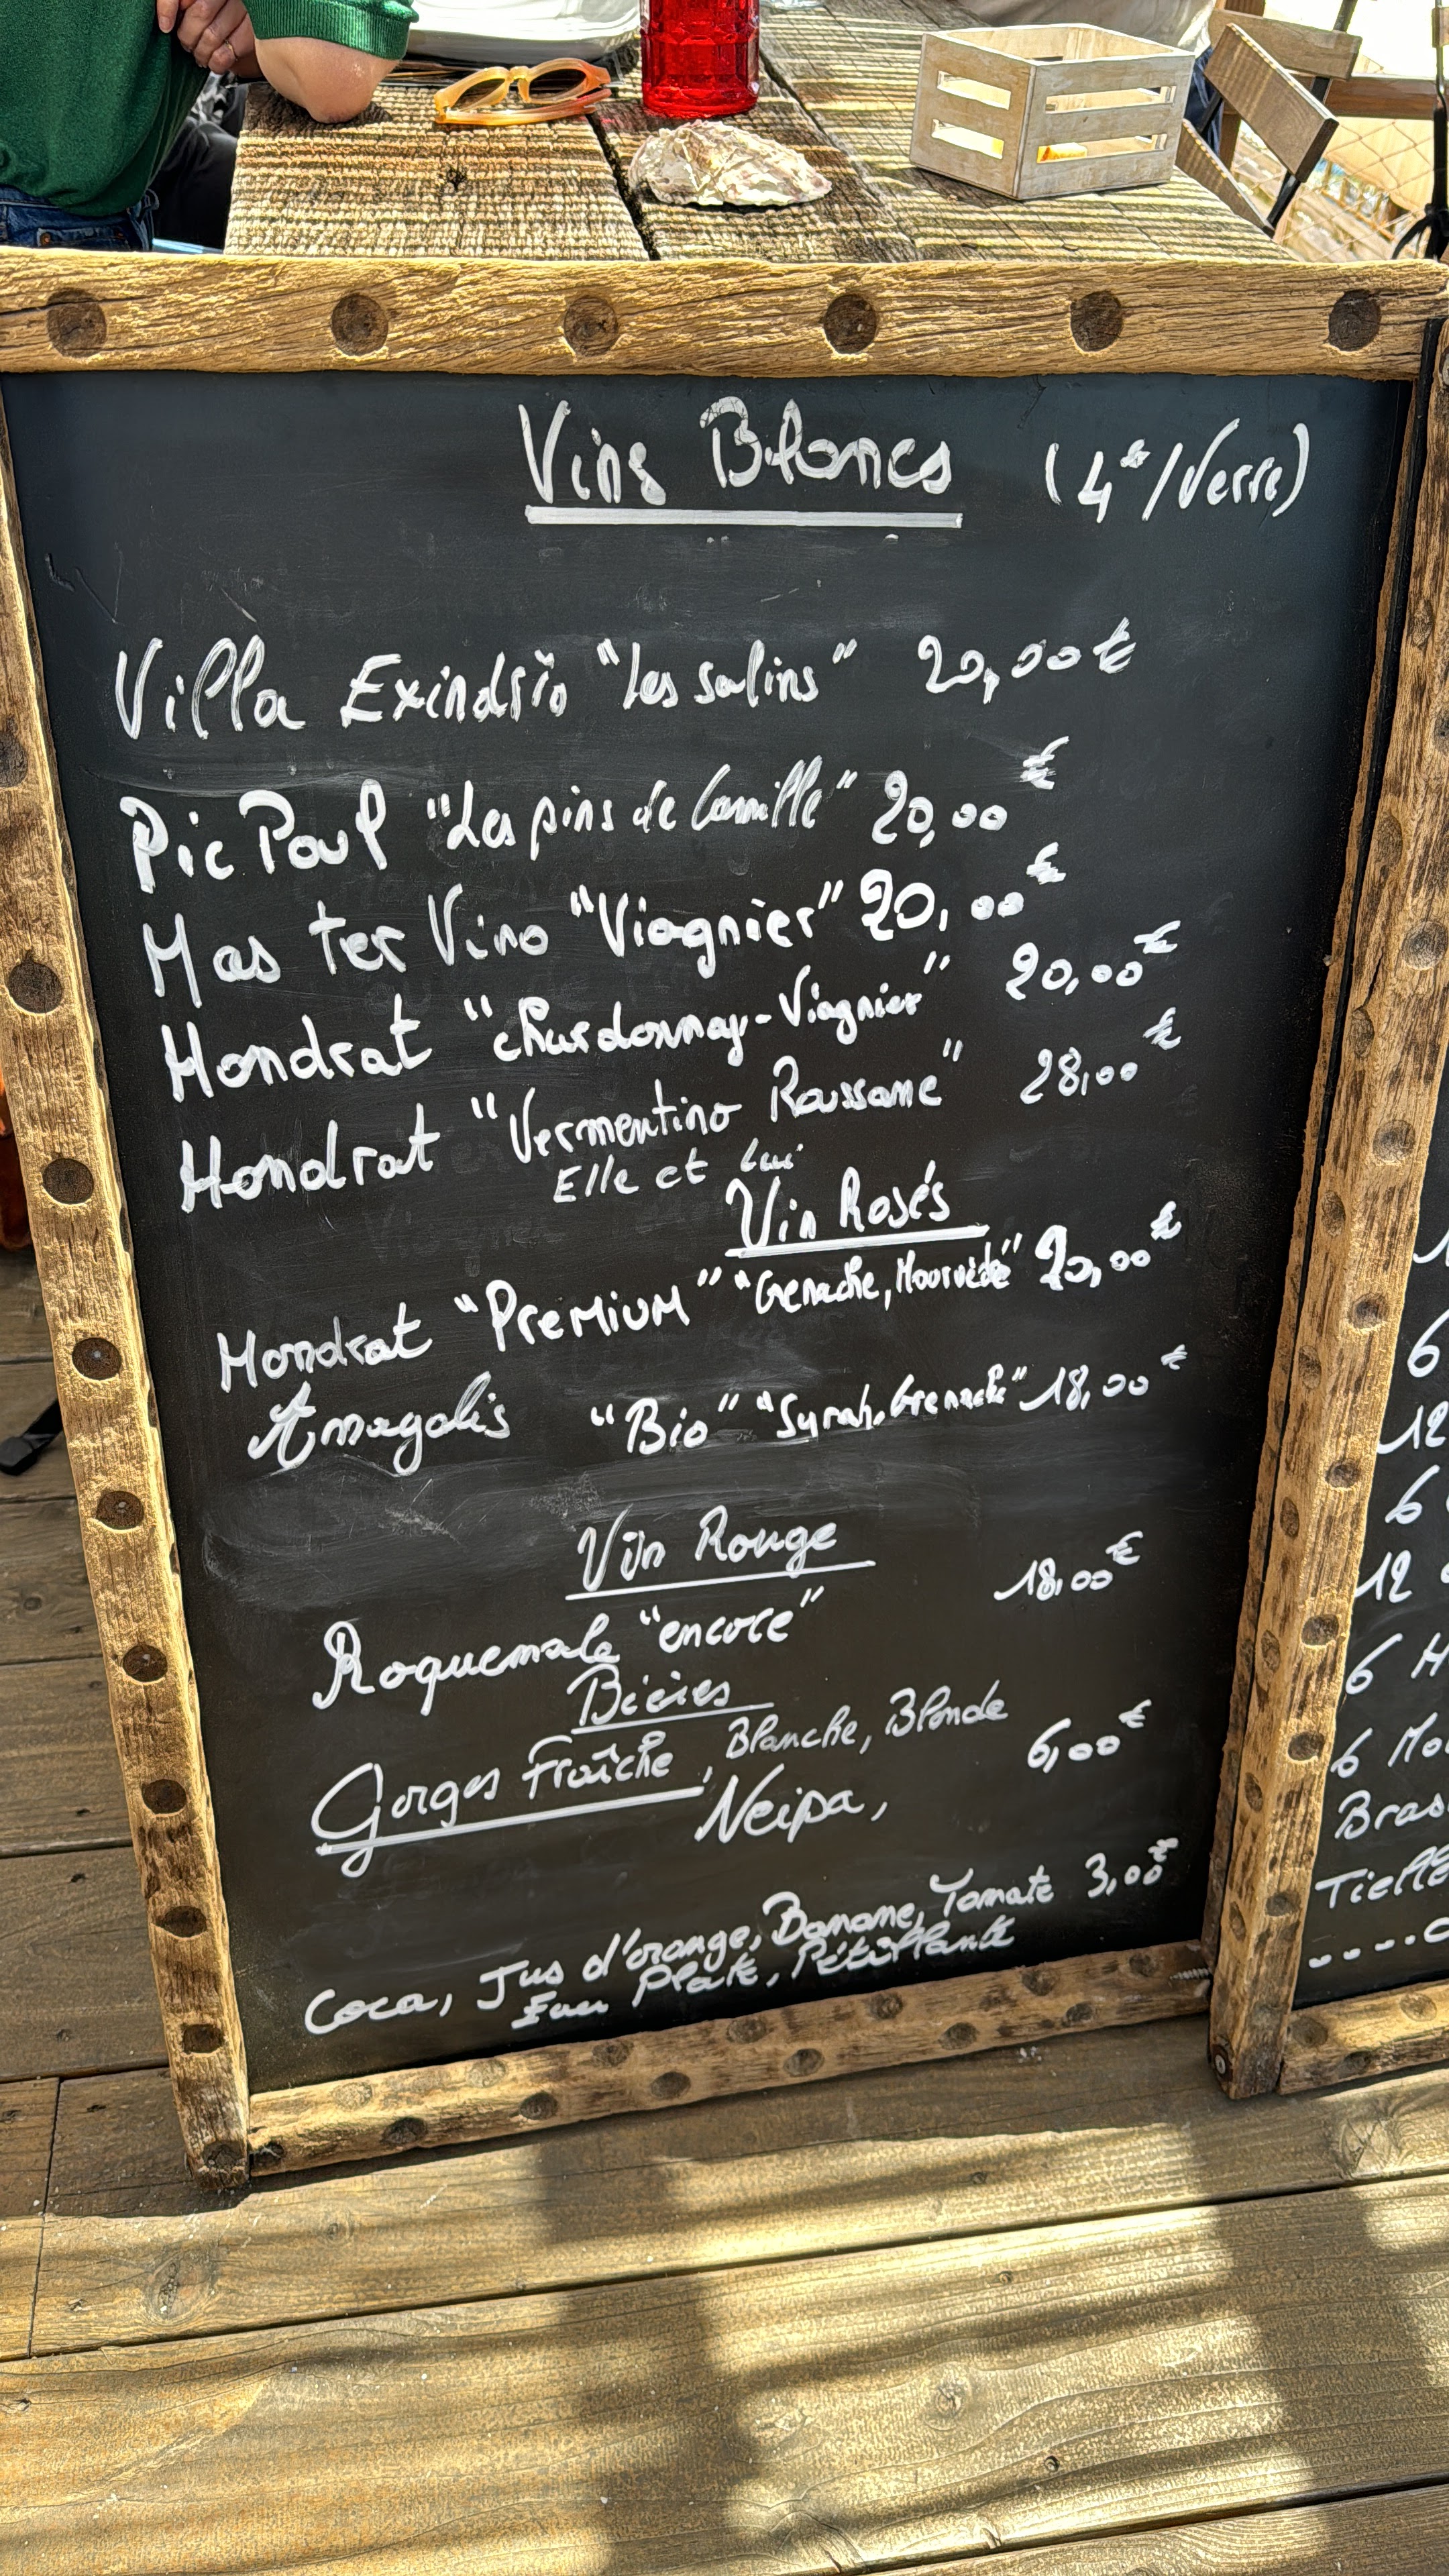 Vins Blancs (4€/Verre)
Villa Exindrio "Les salins" 20,00€
Pic Poul "Les pins de Camille" 20,00€
Mas ter Vino "Viognier" 20,00€
Mondrat "chardonnay-Viognier" 20,00€
Mondrat "Vermentino Roussane" 28,00€
Elle et Lui
Vin Rosés
Mondrat "PREMIUM" "Grenache, Mourvèdre" 20,00€
Amagalis "Bio" "Syrah, Grenache" 18,00€
Vin Rouge
Roquemale "encore" 18,00€
Bières
Gorges Fraîche, Blanche, Blonde 6,00€
Neipa,
Coca, Jus d'orange, Banane, Tomate 3,00€
Eau Plate, Pétillante
6
12
6
12
6 M
6 Mo
Bras
Tielle